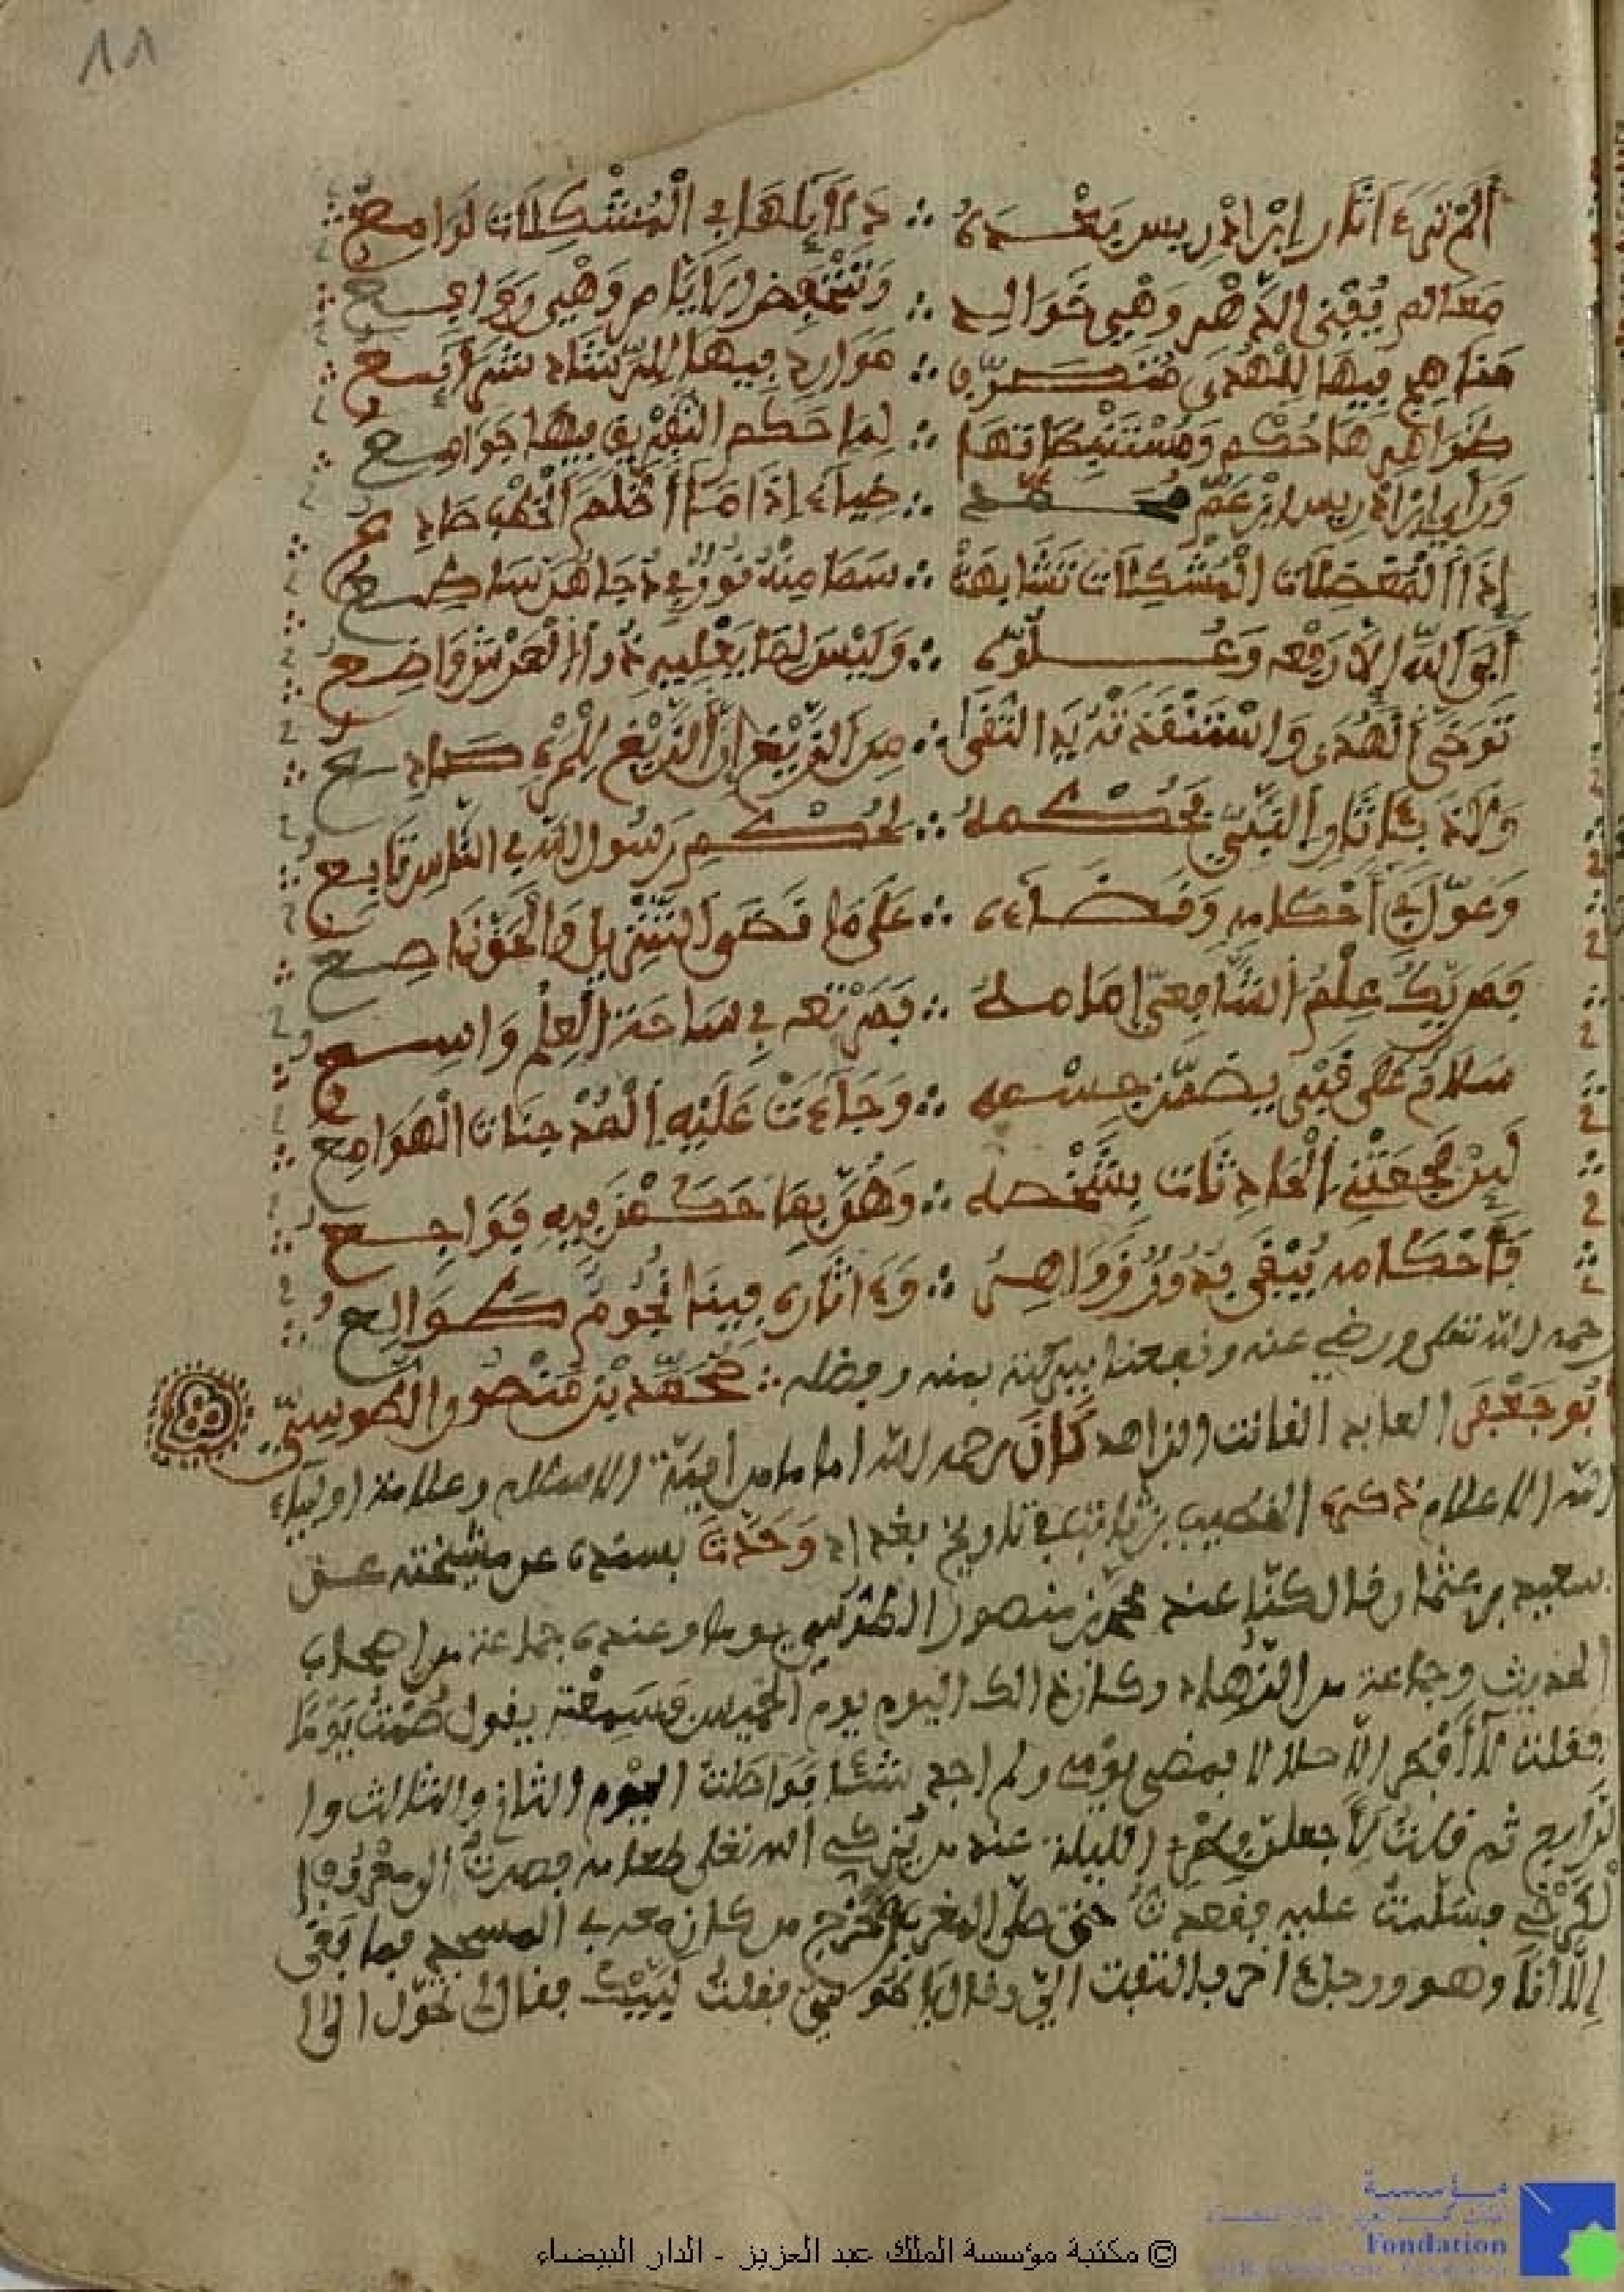 11
ألم تر ءاثار ابن ادريس بعده ∴ دلايلها في المشكلات لوامع
معالم يفنى الدهر وهي خوالد ∴ وتنخفض الايام وهي روافع
مناهج فيها للهدى متصرف ∴ موارد فيها للرشاد شرايع
ظواهرها حكم ومستنبطاتها ∴ لما حكم التفريق فيها جوامع
وراي ابن ادريس ابن عم محمد ∴ ضياء اذا ما اظلم الخطب صادع
إذا المعضلات المشكلات تشابهت ∴ سما منه نور في دجاهن ساطع
أبى الله إلا رفعه وعلوه ∴ وليس لما يعليه ذو العرش واضع
توخى الهدى واستنقذته يد التقى ∴ من الزيغ إن الزيغ للمرء صارع
ولاذ بئاثار النبي فحكمه ∴ لحكم رسول الله في الناس تابع
وعول في أحكامه وقضاءه ∴ على ما قضى التنزيل والحق ناصع
فمن يك علم الشافعي إمامه ∴ فمرتعه في ساحة العلم واسع
سلام على قبر تضمن جسمه ∴ وجاءت عليه المدجنات الهوامع
لئن فجعتنا الحادثات بشخصه ∴ وهن بما حكمن فيه فواجع
فأحكامه تبقى بدور زواهر ∴ وءاثاره فينا نجوم طوالع
رحمه الله تعلى ورضي عنه ونفعنا ببركته بمنه وفضله ∴ محمد بن منصور الطوسي
أبو جعفر العابد القانت الزاهد كان رحمه الله اماما من ايمة الاسلام وعلامة اولياء
الله الاعلام ذكره الخطيب بن ثابت في تاريخ بغداد وحدث بسنده عن مشيخته عن
سعيد بن عثمان قال كنا عند محمد بن منصور الطوسي يوما وعنده جماعة من اصحاب
الحديث وجماعة من الزهاد وكان ذالك اليوم يوم الخميس فسمعته يقول صمت يوما
فقلت لا أفطر الا حلالا فمضى يومي ولم اجد شيئا فواصلت اليوم الثاني والثالث وا
لرابع ثم قلت لأجعلن فطري الليلة عند من يزكي الله تعلى طعامه فصرت الى معروف ا
لكرخي فسلمت عليه فقعدت حتى صلى المغرب فخرج من كان معه في المسجد فما بقي
إلا أنا وهو ورجل ءاخر فالتفت الي وقال يا طوسي فقلت لبيك فقال لي تحول الى ا
مؤسسة
Fondation
© مكتبة مؤسسة الملك عبد العزيز - الدار البيضاء